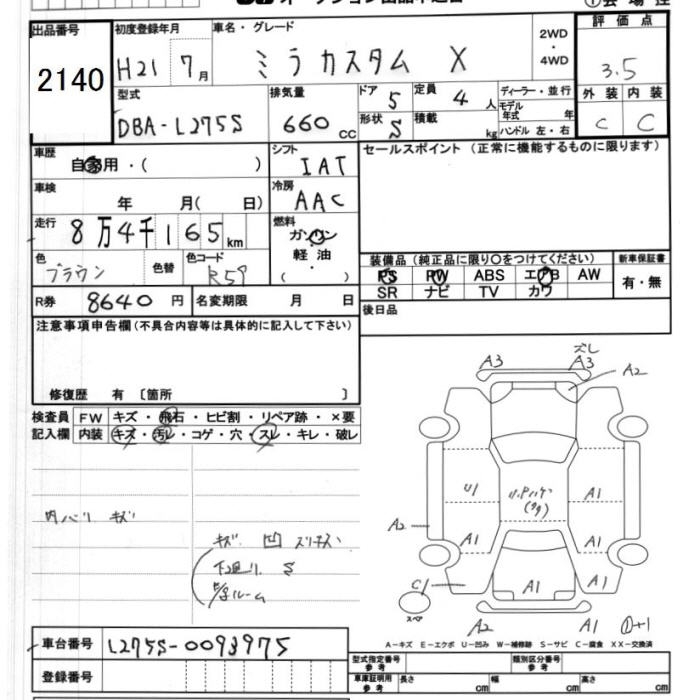 出品番号
2140
初度登録年月
H21 7月
車名・グレード
ミラカスタム X
2WD
・
4WD
評価点
3.5
外装 内装
C C
型式
DBA-L275S
排気量
660 cc
ドア 5
定員 4 人
形状 S
積載 kg
ディーラー・並行
モデル年式 年
ハンドル 左・右
車歴
自家用・( )
シフト
IAT
車検
年 月( 日)
冷房
AAC
走行
8万4千165km
燃料
ガソリン
軽油
( ・ )
色
ブラウン
色替
色コード
R59
R券 8640円
名変期限 月 日
セールスポイント(正常に機能するものに限ります)
装備品(純正品に限り〇をつけてください)
新車保証書
PS PW ABS エアB AW
有・無
SR ナビ TV カワ
後日品
注意事項申告欄(不具合内容等は具体的に記入して下さい)
修復歴 有〔箇所 〕
検査員記入欄
FW キズ・飛石・ヒビ割・リペア跡・×要
内装 キズ・汚レ・コゲ・穴・スレ・キレ・破レ
内ハリ キズ
キズ 凹 スリキズ
下廻リ S
ルーム
A3
ズレ
A3
A2
U1
A1
A2
A1
A1
C1
A1
スペア
A2
A1
A-キズ E-エクボ U-凹み W-補修跡 S-サビ C-腐食 XX-交換済
車台番号 L275S-0093975
登録番号
型式指定番号 参考
類別区分番号 参考
車庫証明用 参考
長さ cm
幅 cm
高さ cm